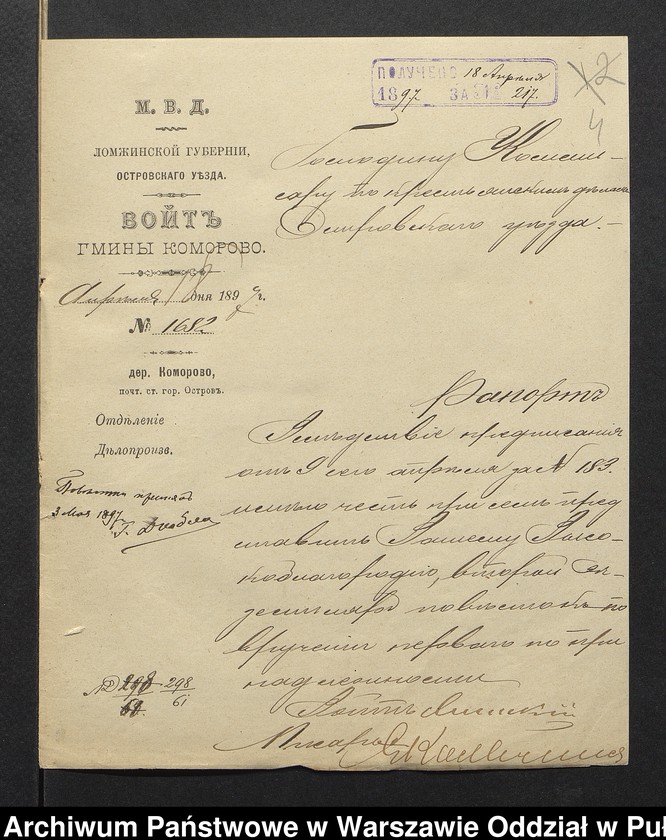 ПОЛУЧЕНО 18 Апрѣля
1897 ЗА № 217.
42
4
М. В. Д.
ЛОМЖИНСКОЙ ГУБЕРНІИ,
ОСТРОВСКАГО УѢЗДА.
ВОЙТЪ
ГМИНЫ КОМОРОВО.
Апрѣля дня 1897 г.
№ 1682
дер. Коморово,
почт. ст. гор. Островъ.
Отдѣленіе
Дѣлопроизв.
Господину Коммис-
сару по крестьянскимъ дѣламъ
Островскаго уѣзда.
Рапортъ
Вслѣдствіе предписанія
отъ 9 сего апрѣля за № 183.
имѣю честь при семъ пред
ставить Вашему Высо-
коблагородію, второй эк-
земпляръ повѣстокъ по
врученіи перваго по при
надлежности
Войтъ
Писарь
Повѣстки принялъ
3 Мая 1897
№ 298 298
61
Archiwum Państwowe w Warszawie Oddział w Pu